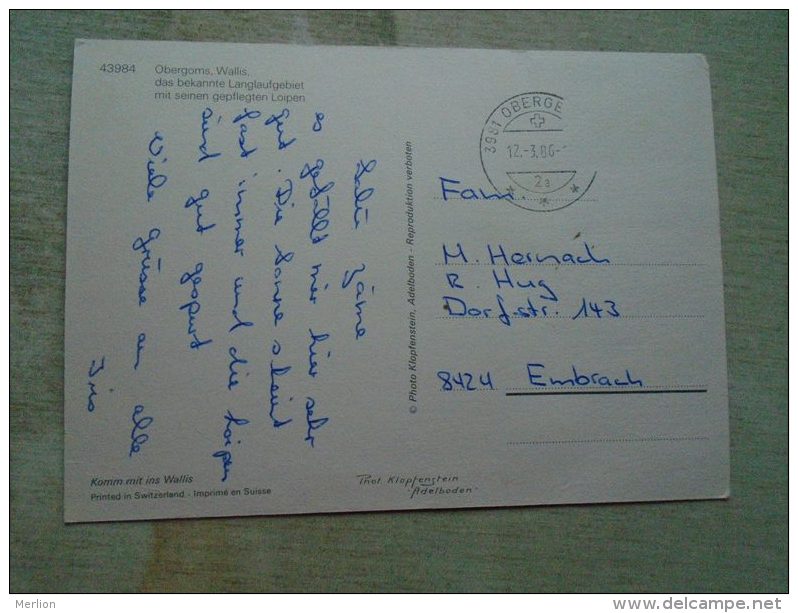 43984
Obergoms, Wallis,
das bekannte Langlaufgebiet
mit seinen gepflegten Loipen
Salü zäme
es gefällt mir hier sehr
gut. Die Sonne scheint
fast immer und die Loipen
sind gut gespurt
Viele Grüsse an alle
Komm mit ins Wallis
Printed in Switzerland - Imprimé en Suisse
© Photo Klopfenstein, Adelboden - Reproduktion verboten
Phot. Klopfenstein
- Adelboden -
3981 OBERGE
12.-3.86-
2a
Fam.
M. Hernach
R. Hug
Dorfstr. 143
8424 Embrach
Merlion
delcampe.net